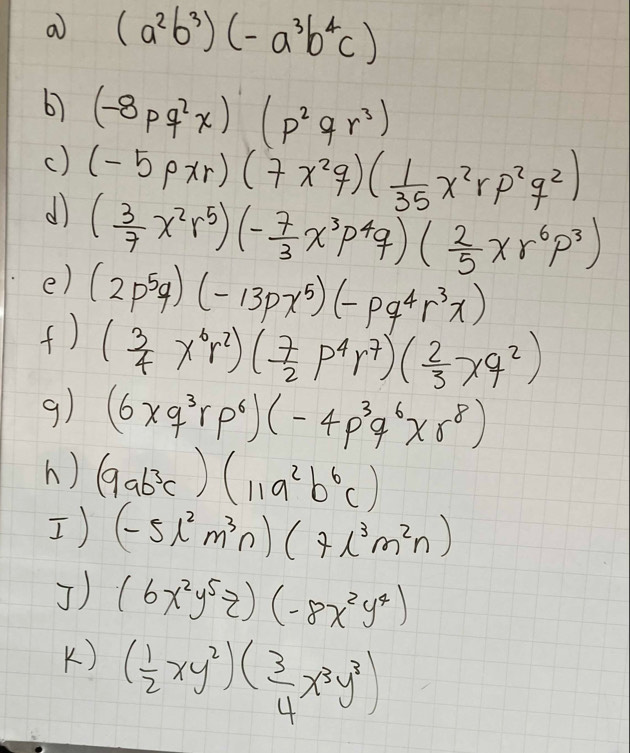 a) (a²b³)(-a³b⁴c)
b) (-8pq²x) (p²qr³)
c) (-5pxr)(7x²q)(1/35 x²rp²q²)
d) (3/7 x²r⁵)(-7/3 x³p⁴q)(2/5 xr⁶p³)
e) (2p⁵q)(-13px⁵)(-pq⁴r³x)
f) (3/4 x⁶r²)(7/2 p⁴r⁷)(2/3 xq²)
g) (6xq³rp⁶)(-4p³q⁶xr⁸)
h) (9ab³c)(11a²b⁶c)
I) (-5l²m³n)(7l³m²n)
J) (6x²y⁵z)(-8x²y⁴)
K) (1/2 xy²)(3/4 x³y³)